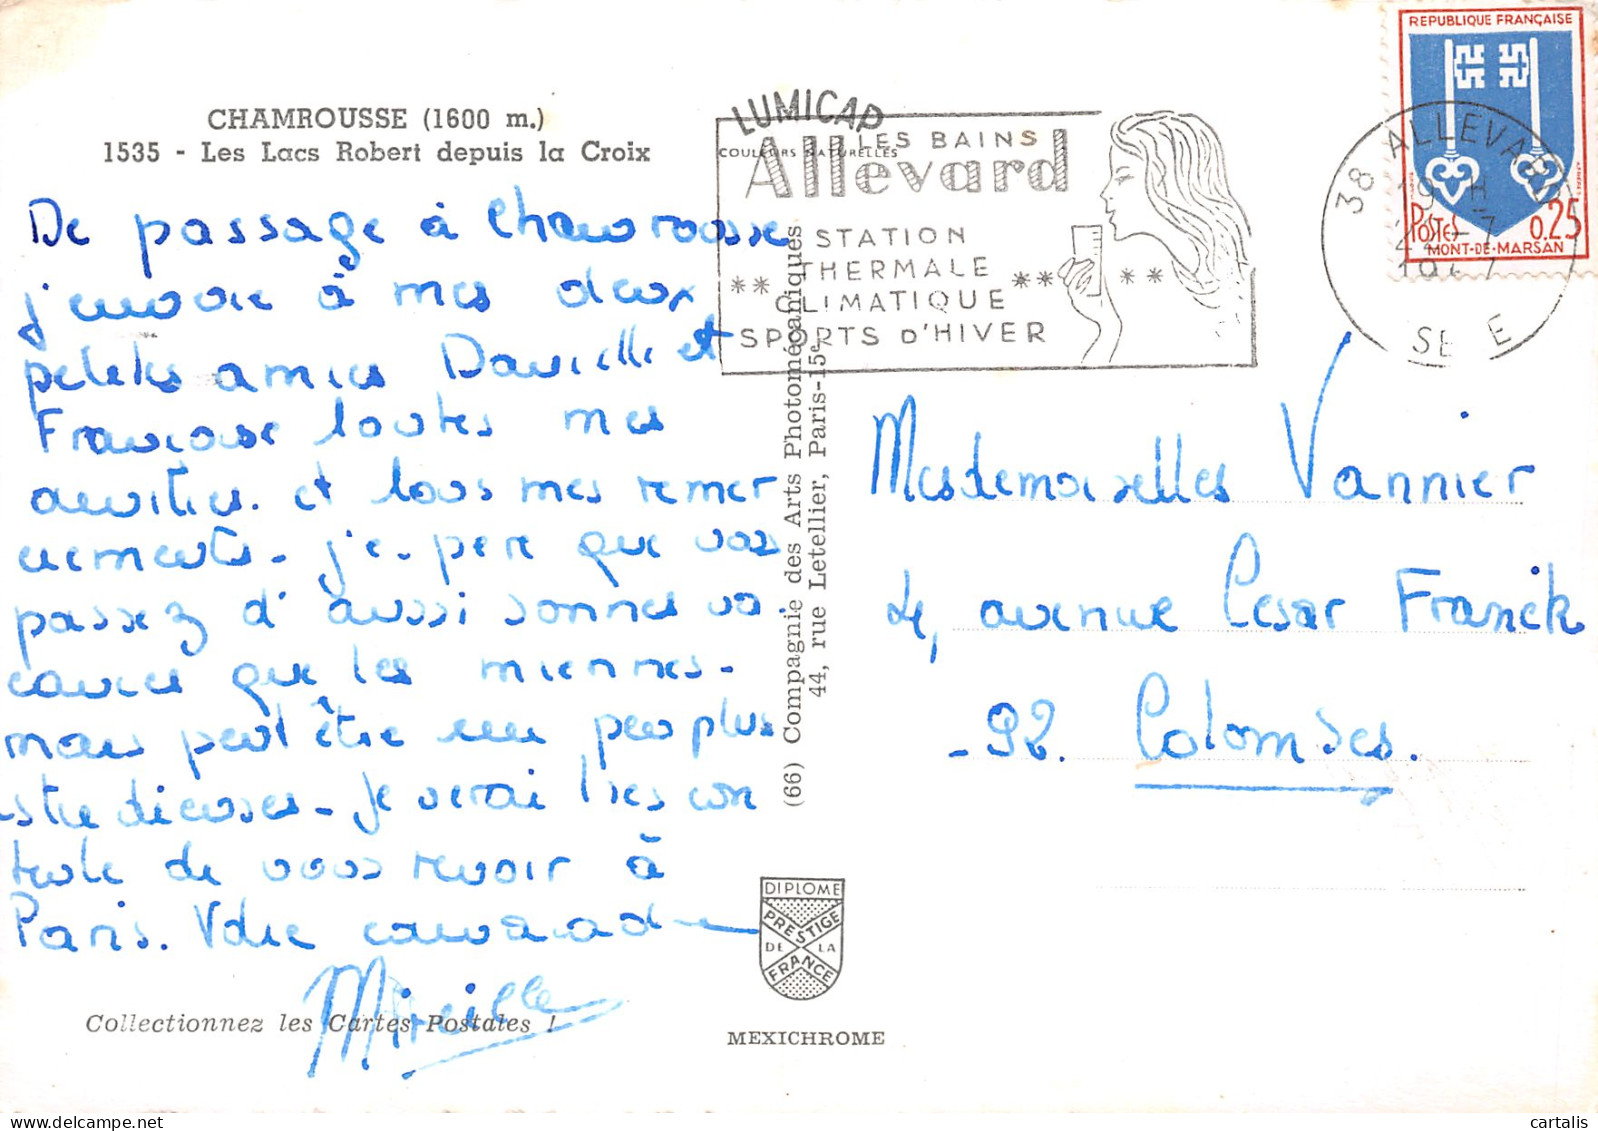 CHAMROUSSE (1600 m.)
1535 - Les Lacs Robert depuis la Croix
De passage à Chamrousse
j'envoie à mes deux
petites amies Danielle et
Francoise toutes mes
amitiés. et tous mes remer
ciements - j'espère que vous
passez d'aussi bonnes va.
cances que les miennes -
mais peut être un peu plus
studieuses - Je serai très con
tente de vous revoir à
Paris. Votre camarade
Mireille
Collectionnez les Cartes Postales !
LUMICAP
COULEURS NATURELLES
(66) Compagnie des Arts Photomécaniques
44, rue Letellier, Paris-15e
DIPLOME
PRESTIGE
DE LA
FRANCE
MEXICHROME
ALLEVARD LES BAINS
STATION
THERMALE
CLIMATIQUE
SPORTS D'HIVER
38 ALLEVARD
19 H
REPUBLIQUE FRANÇAISE
POSTES 0,25
MONT-DE-MARSAN
Mesdemoiselles Vannier
4, avenue Cesar Franck
- 92. Colombes.
cartalis